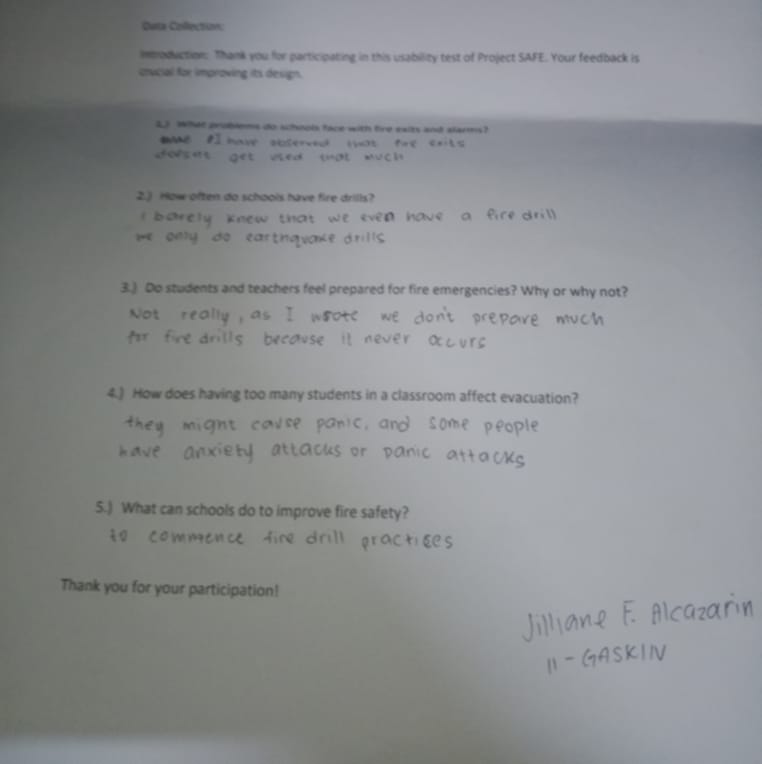 Data Collection:
Introduction: Thank you for participating in this usability test of Project SAFE. Your feedback is
crucial for improving its design.
1.) What problems do schools face with fire exits and alarms?
I have observed that fire exits
doesnt get used that much
2.) How often do schools have fire drills?
I barely knew that we even have a fire drill
we only do earthquake drills
3.) Do students and teachers feel prepared for fire emergencies? Why or why not?
Not really, as I wrote we don't prepare much
for fire drills because it never occurs
4.) How does having too many students in a classroom affect evacuation?
they might cause panic, and some people
have anxiety attacks or panic attacks
5.) What can schools do to improve fire safety?
to commence fire drill practices
Thank you for your participation!
Jilliane F. Alcazarin
11 - GASKIN